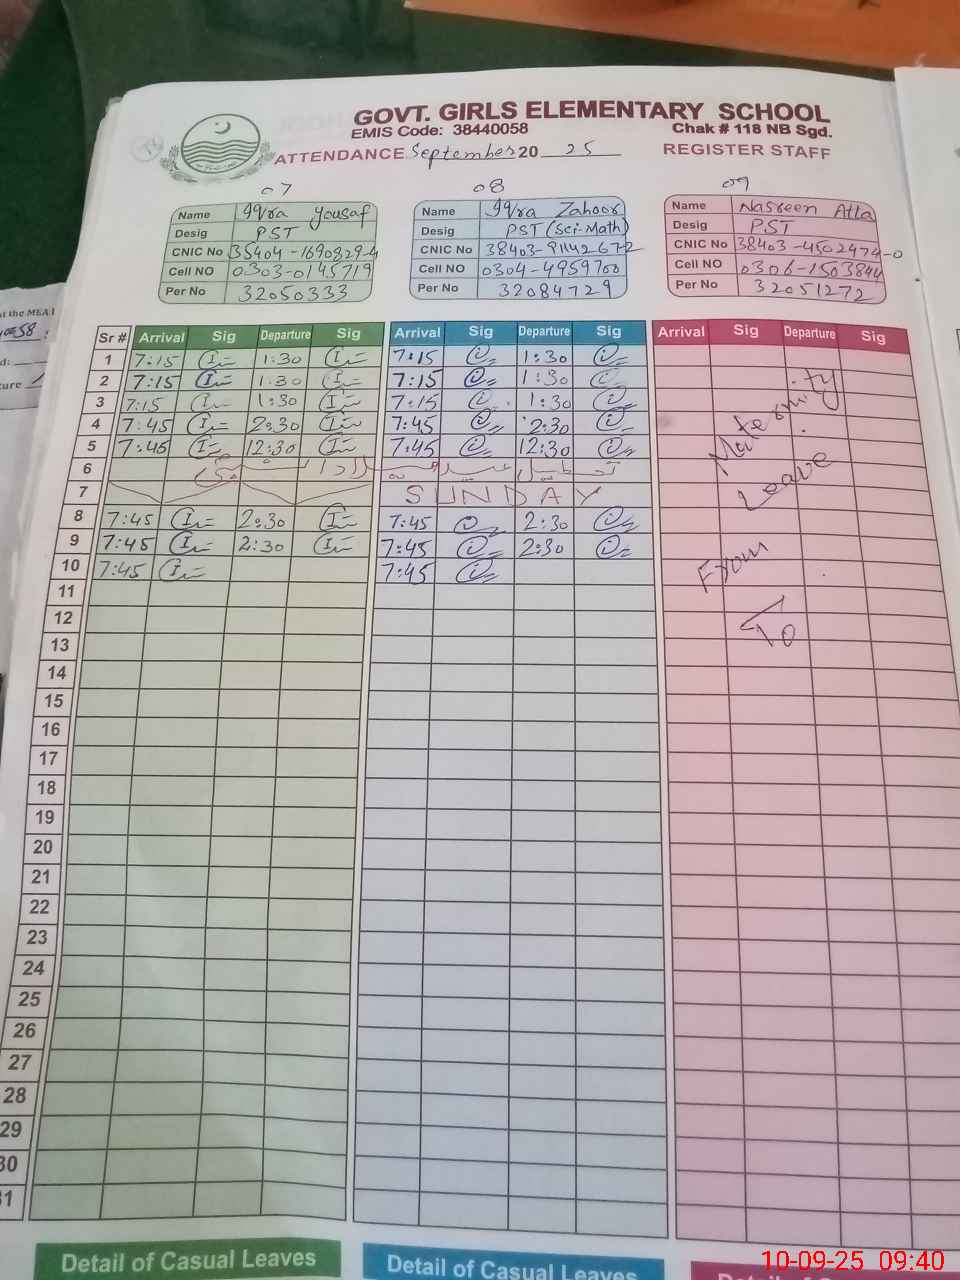 GOVT. GIRLS ELEMENTARY SCHOOL
EMIS Code: 38440058 Chak # 118 NB Sgd.
ATTENDANCE September 20 25 REGISTER STAFF
07 08 09
Name Iqra Yousaf
Desig PST
CNIC No 35404-1690829-4
Cell NO 0303-0145719
Per No 32050333
Name Iqra Zahoor
Desig PST (Sci-Math)
CNIC No 38403-8114267-2
Cell NO 0304-4959700
Per No 32084729
Name Nasreen Atta
Desig PST
CNIC No 38403-4502474-0
Cell NO 0306-1503844
Per No 32051272
at the MEA
Sr # Arrival Sig Departure Sig Arrival Sig Departure Sig Arrival Sig Departure Sig
1 7:15 1:30 7:15 1:30
2 7:15 1:30 7:15 1:30
3 7:15 1:30 7:15 1:30
4 7:45 2:30 7:45 2:30
5 7:45 12:30 7:45 12:30
6 تعطیل عید
7 SUNDAY
8 7:45 2:30 7:45 2:30
9 7:45 2:30 7:45 2:30
10 7:45 7:45
Maternity
Leave
From
To
11
12
13
14
15
16
17
18
19
20
21
22
23
24
25
26
27
28
29
30
31
Detail of Casual Leaves Detail of Casual Leaves
10-09-25 09:40